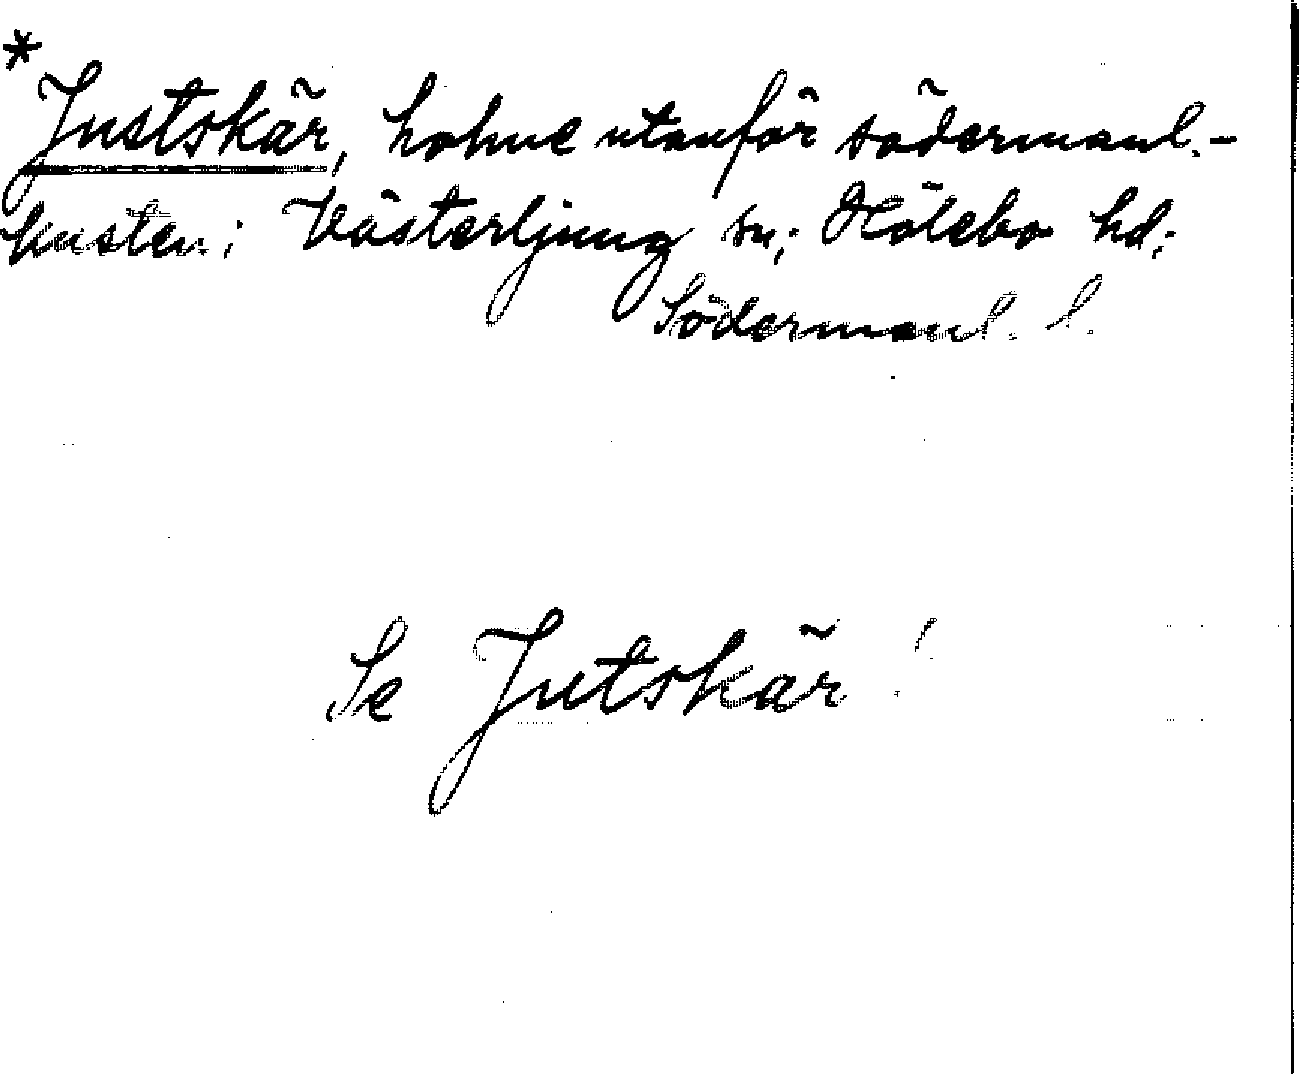 * Justskär, holme utanför södermanl.-
kusten; Västerljung sn; Hölebo hd;
Södermanl. l.
Se Jutskär!